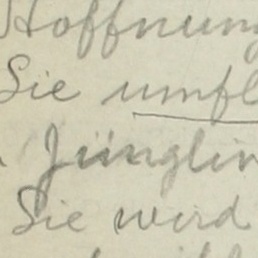 Hoffnung
Sie umfl
Jünglin
Sie wird